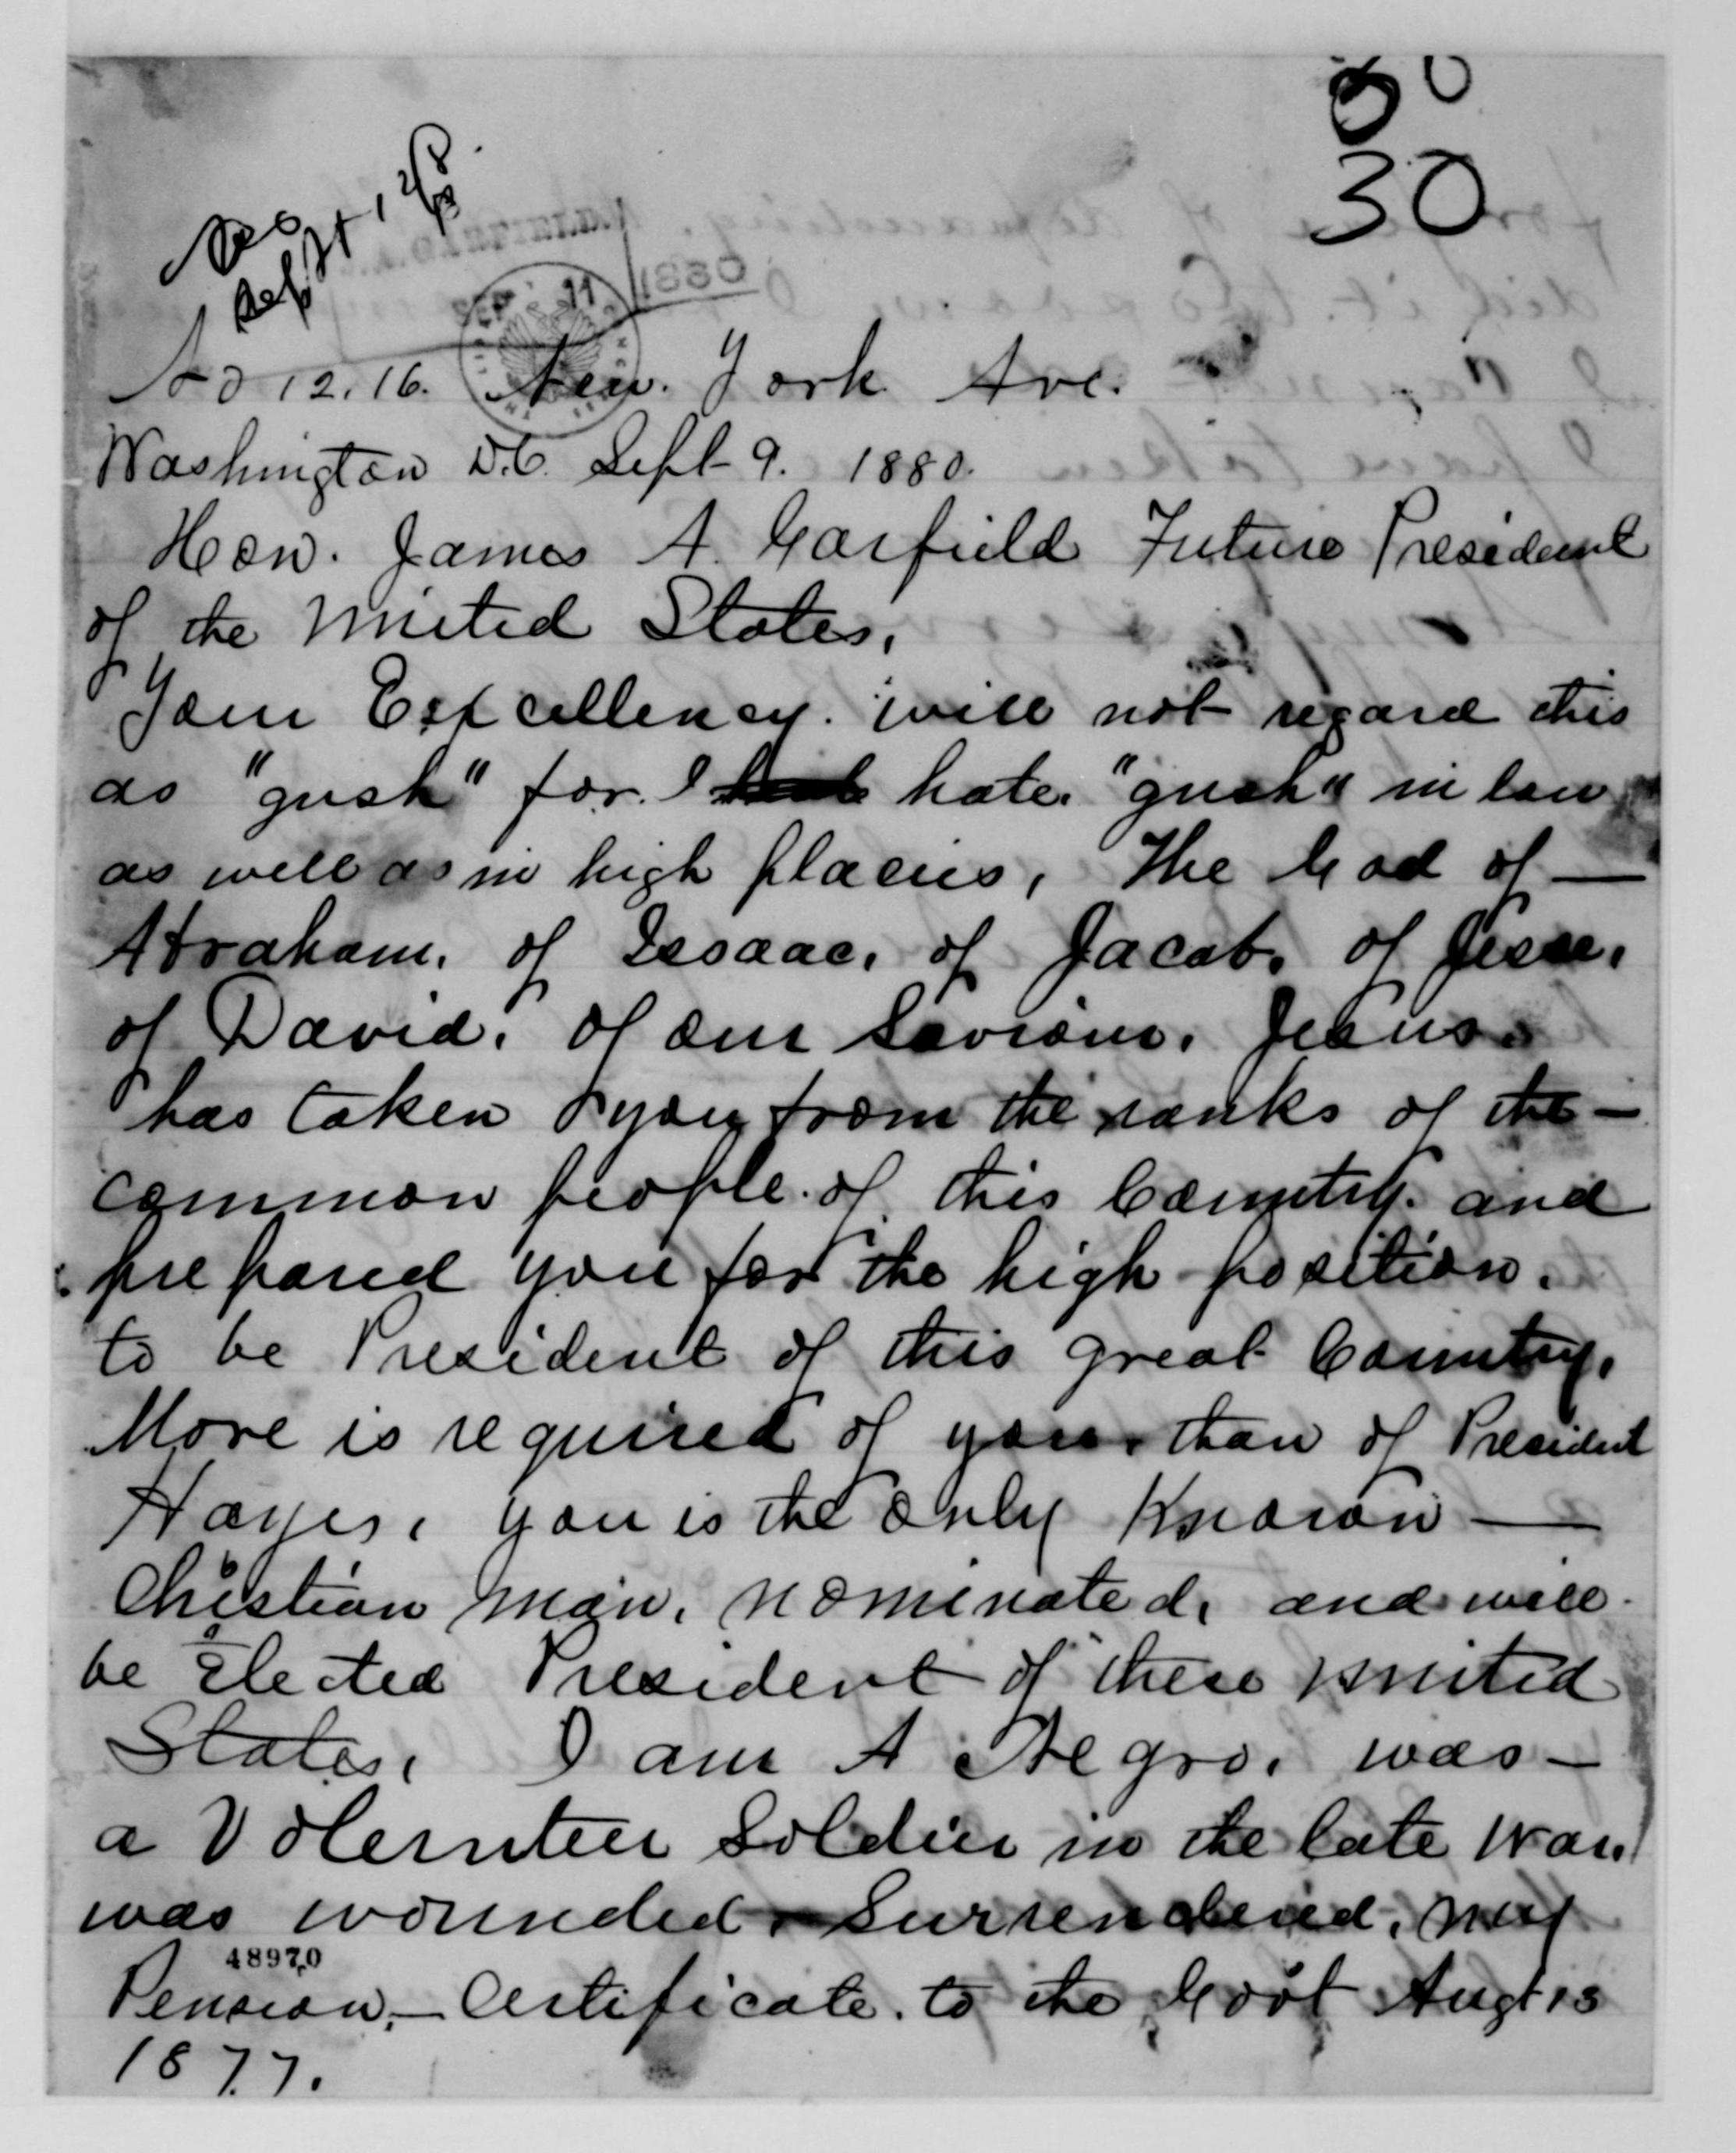 30
Sept 11
1880
No 12.16. New. York Ave.
Washington D.C. Sept 9. 1880.
Hon. James A. Garfield Future President
of the United States,
Your Excellency. will not regard this
as "gush" for I hate. "gush" in low
as well as in high placeis, The God of —
Abraham. of Issaac, of Jacob. of Jesse.
of David. of our Saviour. Jesus.
has taken you from the ranks of the —
common people. of this Country. and
prepared you for the high position.
to be President of this great Country.
More is required of you. than of President
Hayes, you is the only Known —
Christian man, nominated, and will
be Elected President of these United
States, I am A Negro, was —
a Volernteer Soldier in the late War.
was wounded. Surrendered, my
48970
Pension, — Certificate. to the Govt Augt 13
1877.